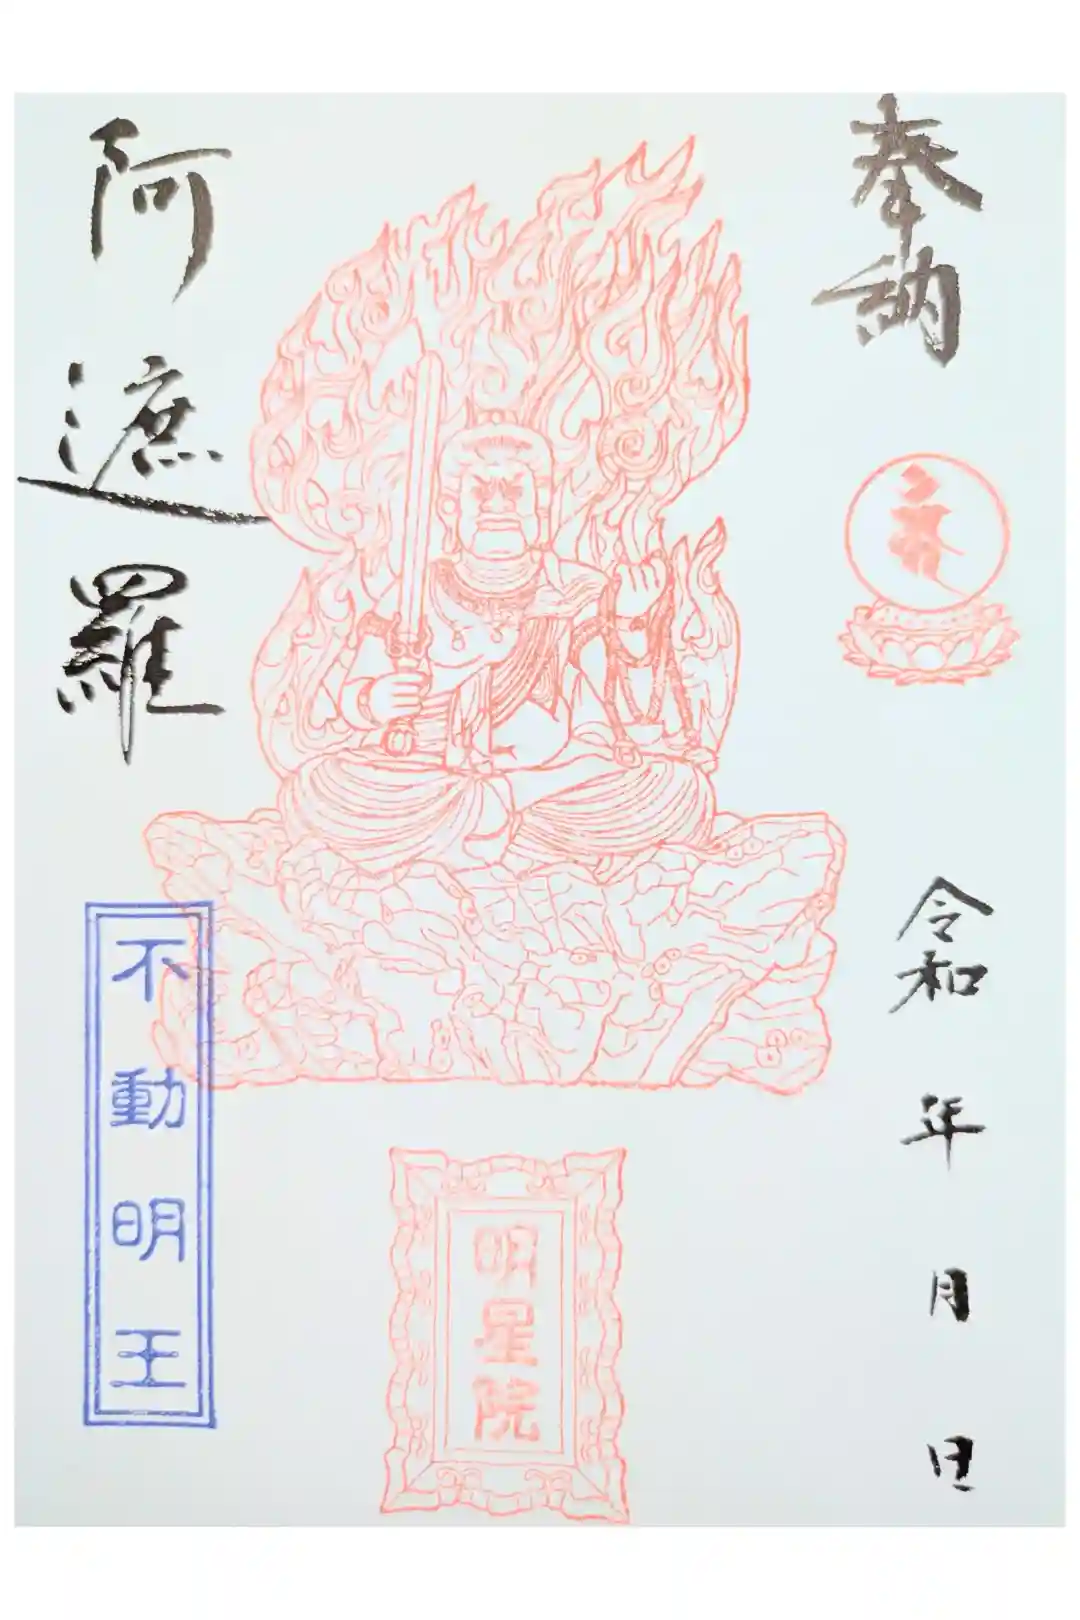 奉納
令和 年 月 日
明星院
阿遮羅
不動明王